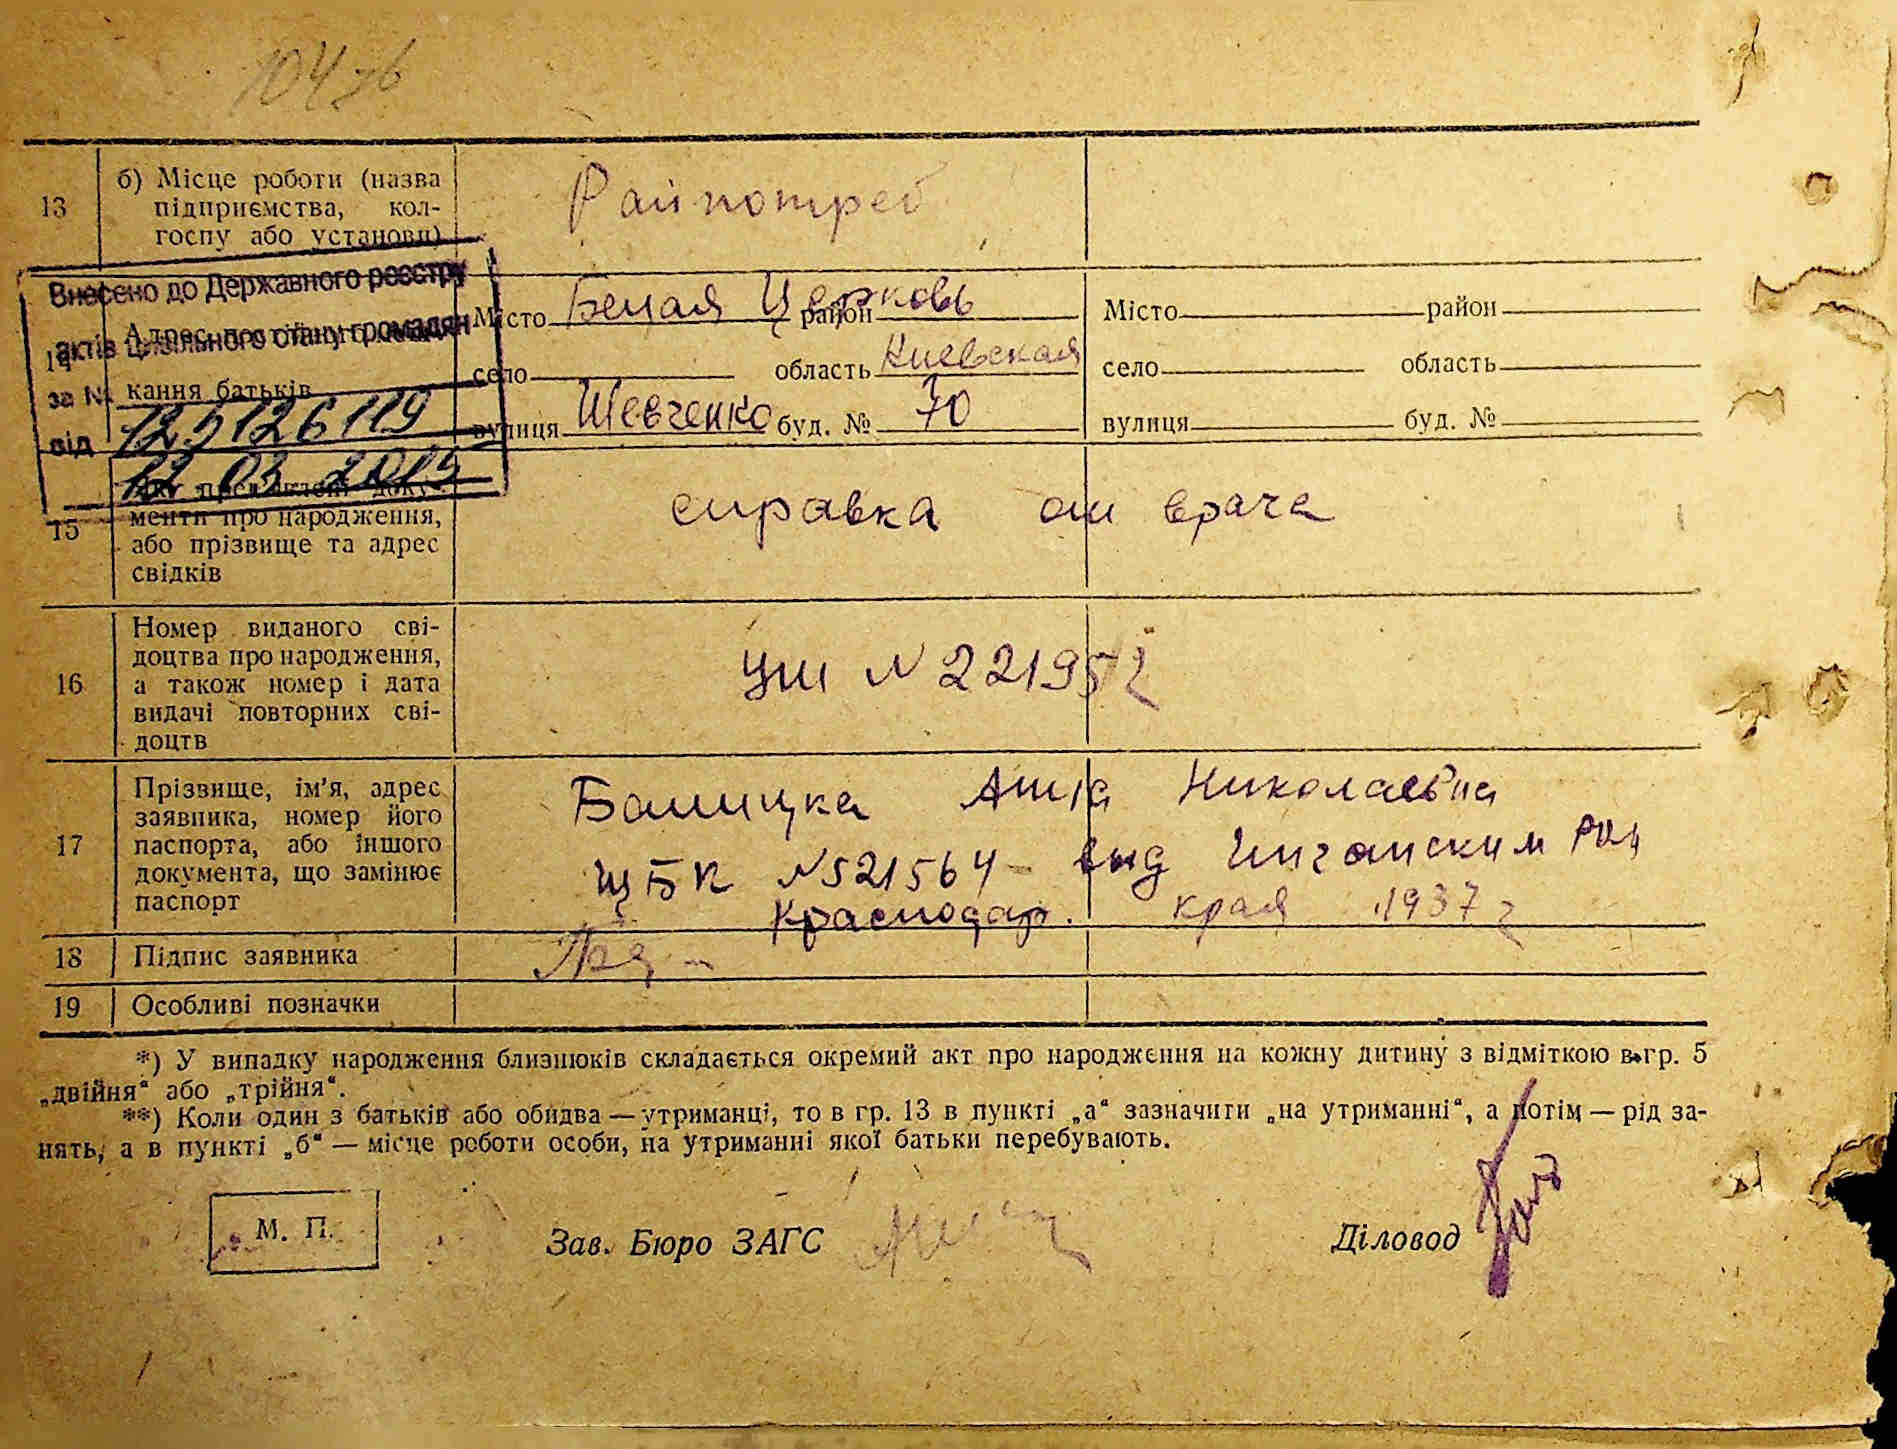 104 зб
13
б) Місце роботи (назва
підприємства, кол-
госпу або установи)
Райпотреб
Внесено до Державного реєстру
актів цивільного стану громадян
за №
125126119
від
12 03 2015
14
Адрес постійного
кання батьків
Місто Белая Церковь район
село область Киевская
вулиця Шевченко буд. № 70
Місто район
село область
вулиця буд. №
15
доку-
менти про народження,
або прізвище та адрес
свідків
справка от врача
16
Номер виданого сві-
доцтва про народження,
а також номер і дата
видачі повторних сві-
доцтв
ЦШ N 221952
17
Прізвище, ім'я, адрес
заявника, номер його
паспорта, або іншого
документа, що замінює
паспорт
Николаевна
ЩБК N521564 выд
Краснодар. края 1937 г
18
Підпис заявника
19
Особливі позначки
*) У випадку народження близнюків складається окремий акт про народження на кожну дитину з відміткою в гр. 5
„двійня“ або „трійня“.
**) Коли один з батьків або обидва — утриманці, то в гр. 13 в пункті „а“ зазначити „на утриманні“, а потім — рід за-
нять, а в пункті „б“ — місце роботи особи, на утриманні якої батьки перебувають.
М. П.
Зав. Бюро ЗАГС
Діловод